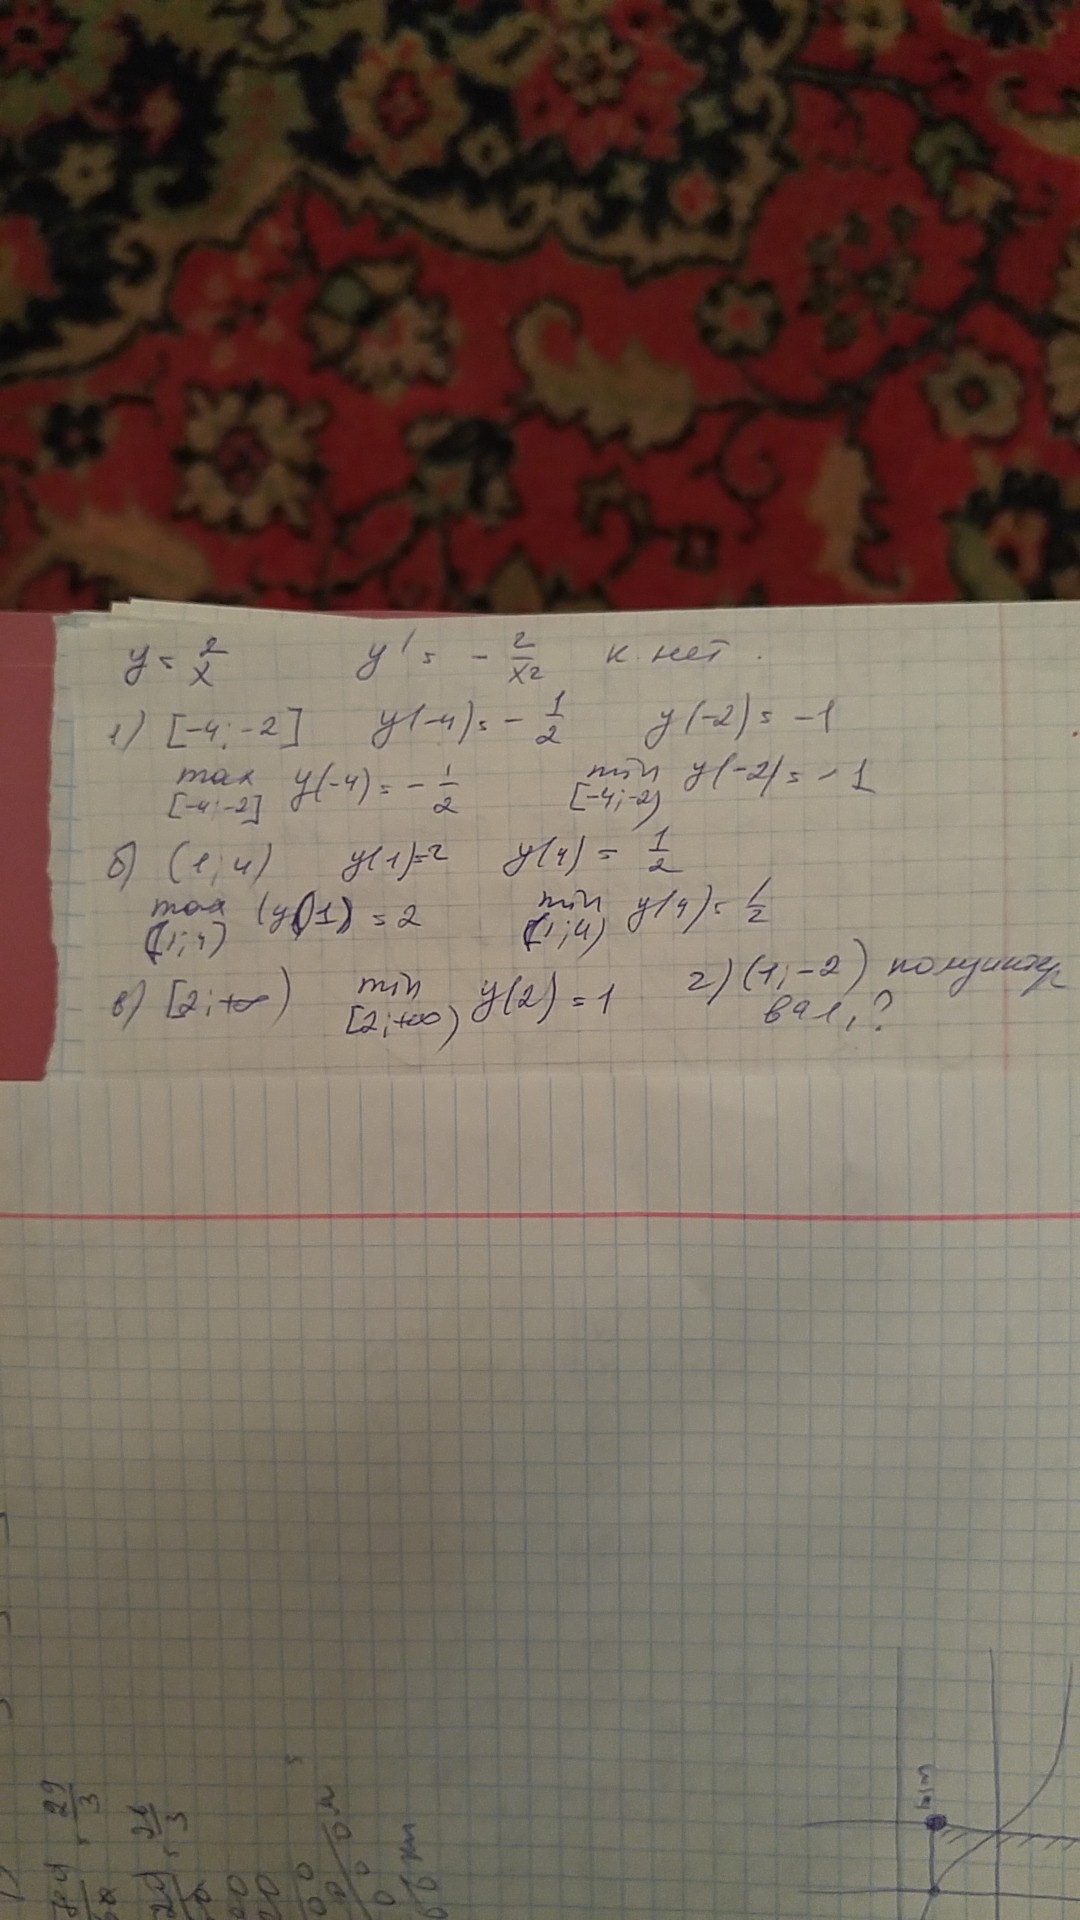 y = 2/x y' = - 2/x² к. нет.
1) [-4; -2] y(-4) = - 1/2 y(-2) = -1
max [-4; -2] y(-4) = - 1/2 min [-4; -2) y(-2) = -1
б) (1; 4) y(1)=2 y(4) = 1/2
max (1; 4) (y(1) = 2 min (1; 4) y(4) = 1/2
в) [2; +∞) min [2; +∞) y(2) = 1 г) (1; -2) полуинтер
вал,?
29/3